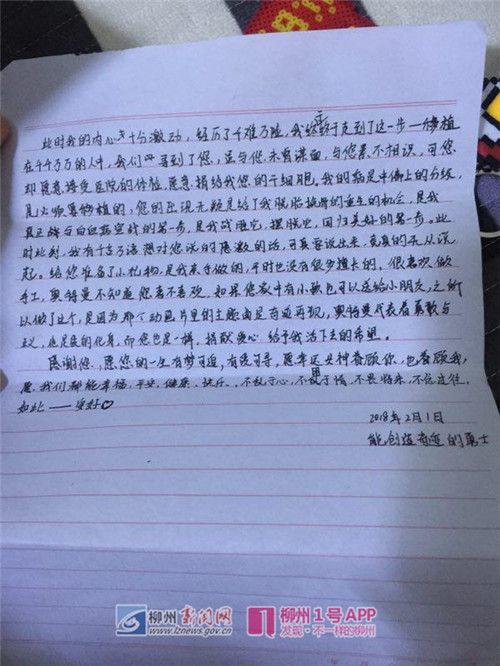 此时我的内心十分激动，经历了千难万险，我终于走到了这一步—移植
在千千万万的人中，我们寻到了您，虽与您未曾谋面，与您素不相识，可您
却愿意接受医院的体检，愿意捐给我您的干细胞。我的病是中偏上的分级，
几乎必须要移植的，您的出现无疑是给了我脱胎换骨的重生的机会，是我
真正能与白血病宣战的第一步，是我战胜它，摆脱它，回归美好的第一步。此
时此刻，我有千言万语想对您说的感激的话，可真要说出来，竟真的无从说
起。给您准备了小礼物，是我亲手做的，平时也没有很多擅长的，很喜欢做
手工，奥特曼不知道您喜不喜欢，如果您家中有小孩也可以送给小朋友，之所
以做了这个，是因为那个动画片里的主题曲是奇迹再现，奥特曼代表着勇敢与
正义，也是爱的化身，而您也是一样，捐献爱心给予我活下去的希望。
感谢您，愿您的一生有梦可追，有境可寻，愿幸运女神眷顾你，也眷顾我，
愿我们都能幸福，平安，健康，快乐，不乱于心，不困于情，不畏将来，不念过往，
如此——安好♡
2018年2月1日
能创造奇迹的勇士
柳州新闻网
www.lznews.gov.cn
柳州1号APP
发现·不一样的柳州